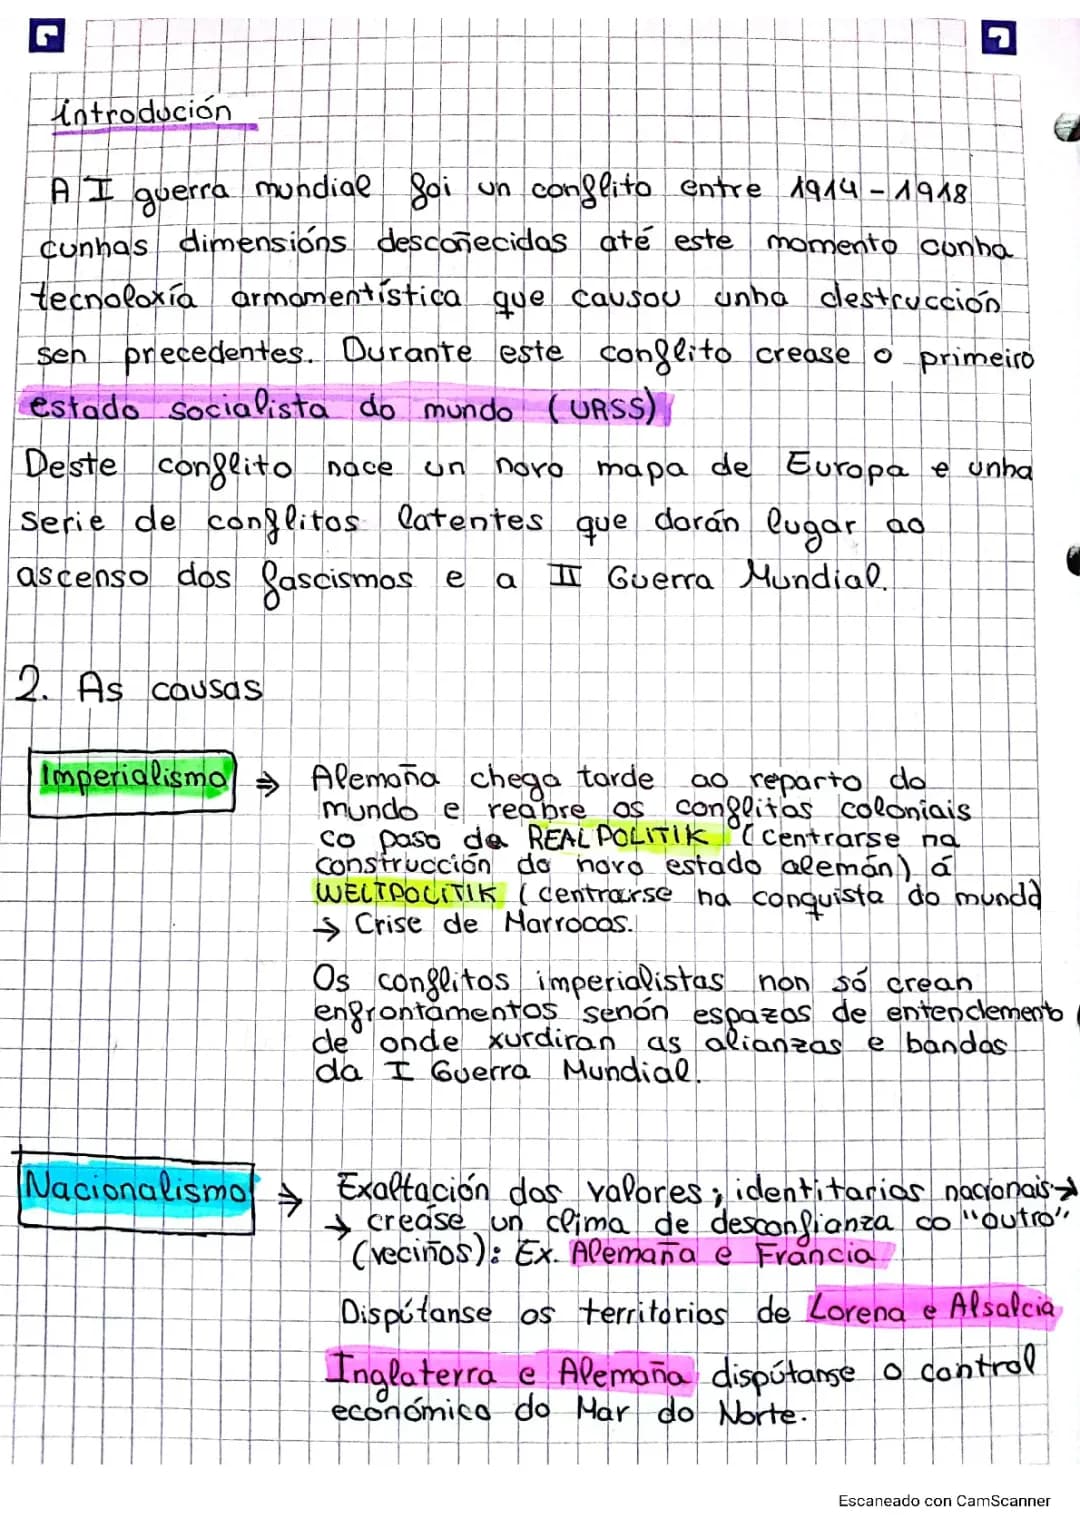 introdución
A I guerra mundial foi un conflito entre 1914-1918
cunhas dimensións descoñecidas até este momento cunha
tecnoloxía armamentística que causou unha destrucción
sen precedentes. Durante este conflito crease o primeiro
estado socialista do mundo (URSS)
Deste conflito nace un novo mapa de Europa e unha
serie de conflitos latentes que darán lugar ao
ascenso dos fascismos e a II Guerra Mundial.
2. As causas
Imperialismo ⇒ Alemaña chega tarde ao reparto do
mundo e reabre os conflitos coloniais
co paso da REALPOLITIK (centrarse na
construcción do novo estado alemán) á
WELTPOLITIK (centrarse na conquista do mundo)
→ Crise de Marrocos.
Os conflitos imperialistas non só crean
enfrontamentos senón espazos de entendemento
de onde xurdiran as alianzas e bandos
da I Guerra Mundial.
Nacionalismo → Exaltación dos valores; identitarios nacionais→
→ crease un clima de desconfianza co "outro"
(veciños): Ex. Alemaña e Francia
Dispútanse os territorios de Lorena e Alsalcia
Inglaterra e Alemaña dispútanse o control
económico do Mar do Norte.
Escaneado con CamScanner